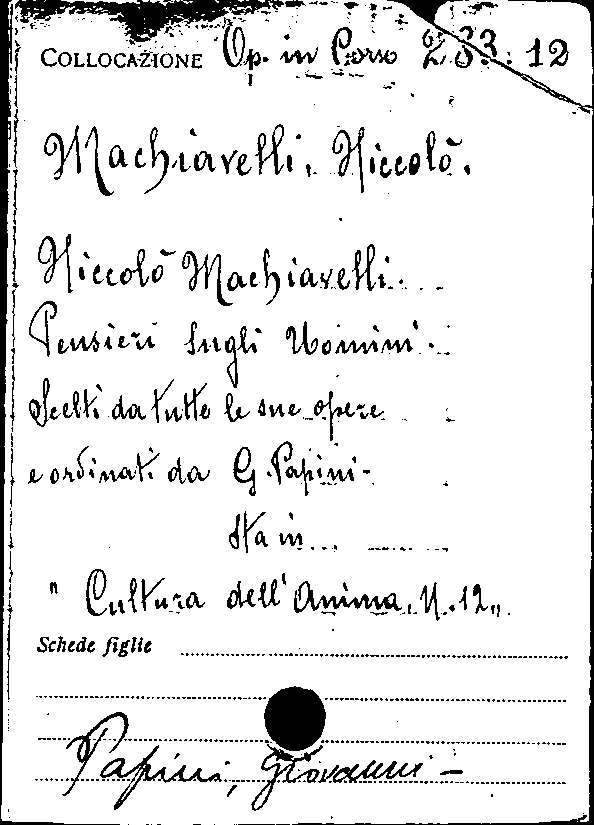 COLLOCAZIONE Op. in Corso 233. 12
Machiavelli, Niccolò.
Niccolò Machiavelli.
Pensieri sugli Uomini.
Scelti da tutte le sue opere
e ordinati da G. Papini-
Sta in
" Cultura dell'Anima, N. 12"
Schede figlie
Papini, Giovanni -